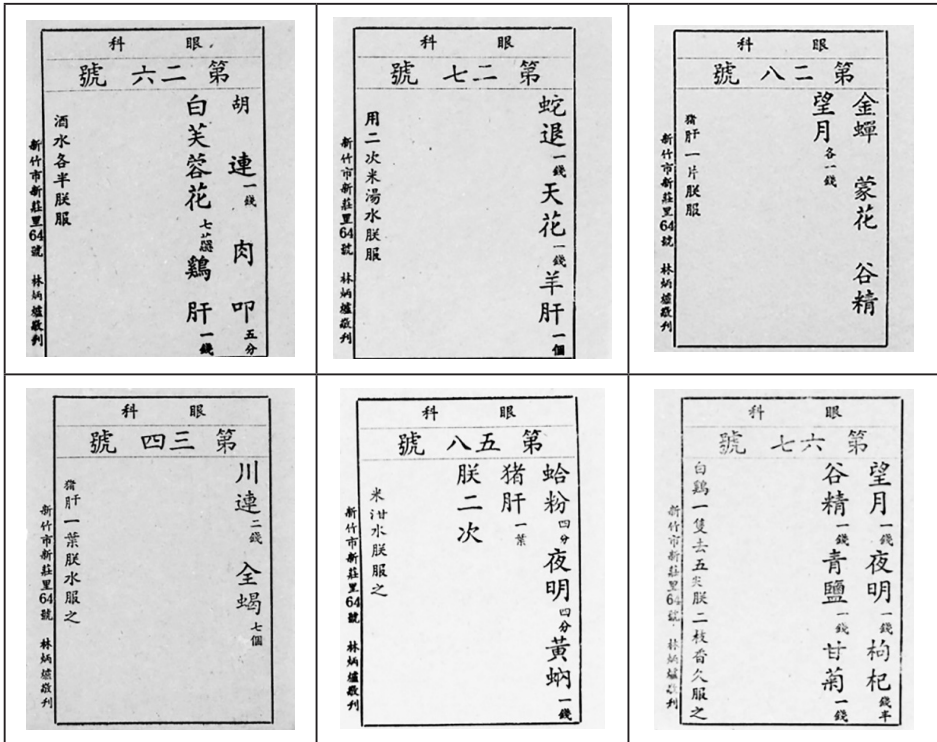 眼科
第二六號
胡連一錢肉叩五分
白芙蓉花七蕊鷄肝一錢
酒水各半朕服
新竹市新莊里64號 林炳爐敬刋
眼科
第二七號
蛇退一錢天花一錢羊肝一個
用二次米湯水朕服
新竹市新莊里64號 林炳爐敬刋
眼科
第二八號
金蟬 蒙花 谷精
望月各一錢
猪肝一片朕服
新竹市新莊里64號 林炳爐敬刋
眼科
第三四號
川連二錢 全蝎七個
猪肝一葉朕水服之
新竹市新莊里64號 林炳爐敬刋
眼科
第五八號
蛤粉四分夜明四分黃蚋一錢
猪肝一葉
朕二次
米泔水朕服之
新竹市新莊里64號 林炳爐敬刋
眼科
第六七號
望月一錢夜明一錢枸杞錢半
谷精一錢青鹽一錢甘菊一錢
白鷄一隻去五尖朕二枝香久服之
新竹市新莊里64號 林炳爐敬刋